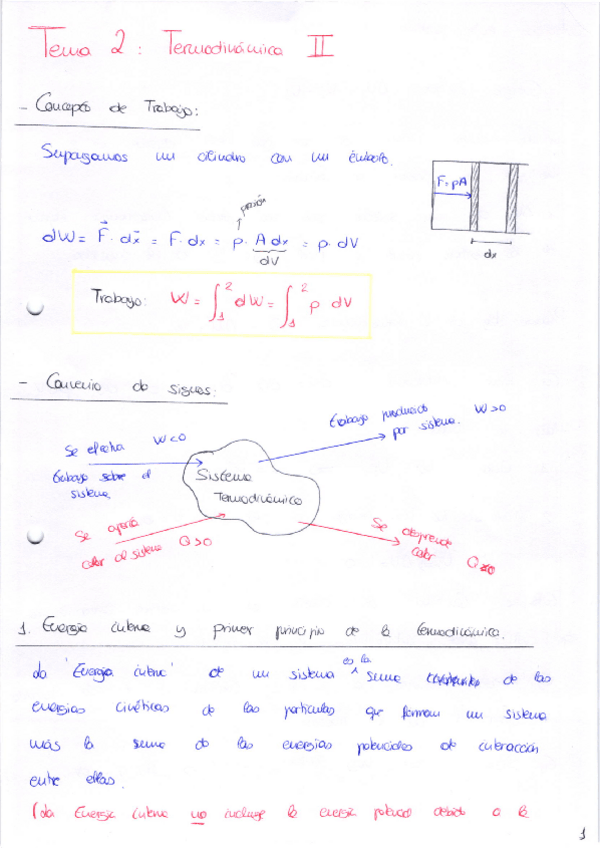 Tema 2: Termodinámica II
- Concepto de Trabajo:
Supongamos un cilindro con un émbolo.
F=pA
dx
presión
dW = F⃗ · dx⃗ = F · dx = p · A dx = p · dV
dV
Trabajo: W = ∫₁² dW = ∫₁² p dV
- Convenio de signos:
Se efectúa W<0
trabajo sobre el
sistema
trabajo producido
por sistema. W>0
Sistema
Termodinámico
Se aporta
calor al sistema Q>0
Se desprende
calor Q<0
1. Energía interna y primer principio de la termodinámica.
La 'Energía interna' de un sistema es la suma de las
energías cinéticas de las partículas que forman un sistema
más la suma de las energías potenciales de interacción
entre ellas.
(La Energía interna no incluye la energía potencial debido a la
1